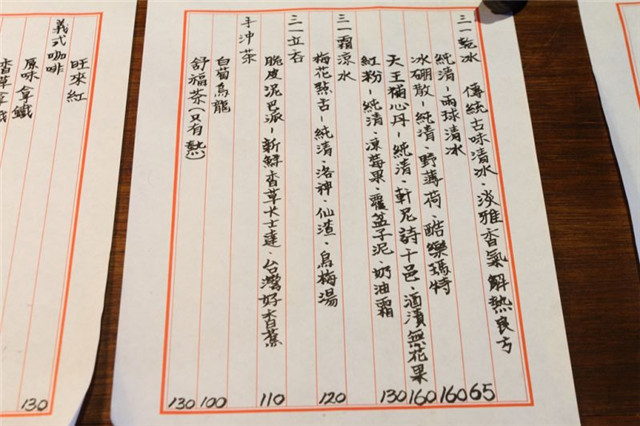 三一乾冰 傳統古味清冰、淡雅香氣 解熱良方
純清-兩球清冰 65
冰硼散-純清、野薄荷、酷樂瑪特 160
天王補心丹-純清、軒尼詩干邑、酒漬無花果 160
紅粉-純清、凍莓果、覆盆子泥、奶油霜 130
三一霜涼水
梅花點舌-純清、洛神、仙渣、烏梅湯 120
三一立杏
脆皮泥巴派-新鮮香草卡士達、台灣好香蕉 110
手沖茶
白菊烏龍 100
舒福茶(只有熱) 130
旺來紅
義式咖啡
原味拿鐵 130
香草拿鐵